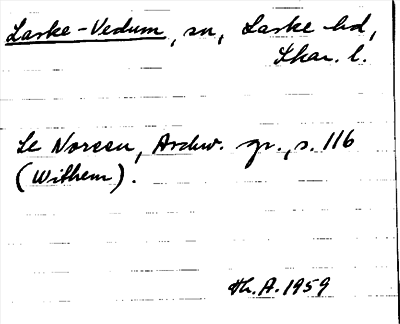 Larke-Vedum, sn, Larke hd,
Skar. l.
Se Noreen, Ark. gr., s. 116
(Withem).
Th. A. 1959